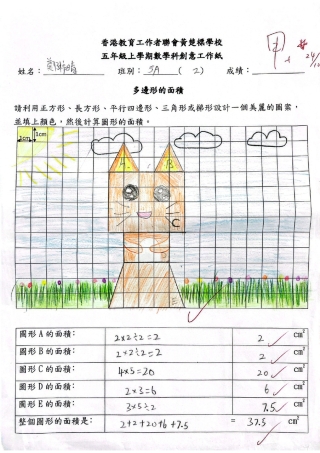 香港教育工作者聯會黃楚標學校
五年級上學期數學科創意工作紙
甲
24/10
姓名：
班別： 5A ( 2 ) 成績：
多邊形的面積
請利用正方形、長方形、平行四邊形、三角形或梯形設計一個美麗的圖案，
並填上顏色，然後計算圖形的面積。
1cm 1cm
A B
C
D
E
圖形 A 的面積： 2×2÷2=2 2 cm²
圖形 B 的面積： 2×2÷2=2 2 cm²
圖形 C 的面積： 4×5=20 20 cm²
圖形 D 的面積： 2×3=6 6 cm²
圖形 E 的面積： 3×5÷2 7.5 cm²
整個圖形的面積是： 2+2+20+6+7.5 = 37.5 cm²